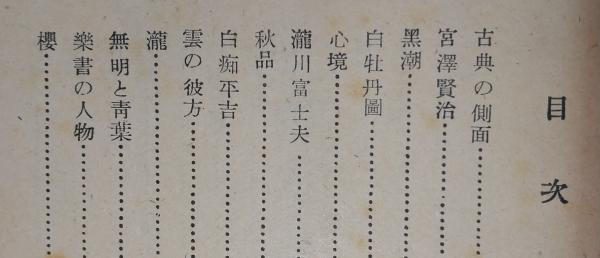 目次
古典の側面
宮澤賢治
黑潮
白牡丹圖
心境
瀧川富士夫
秋品
白痴平吉
雲の彼方
瀧
無明と靑葉
樂書の人物
櫻